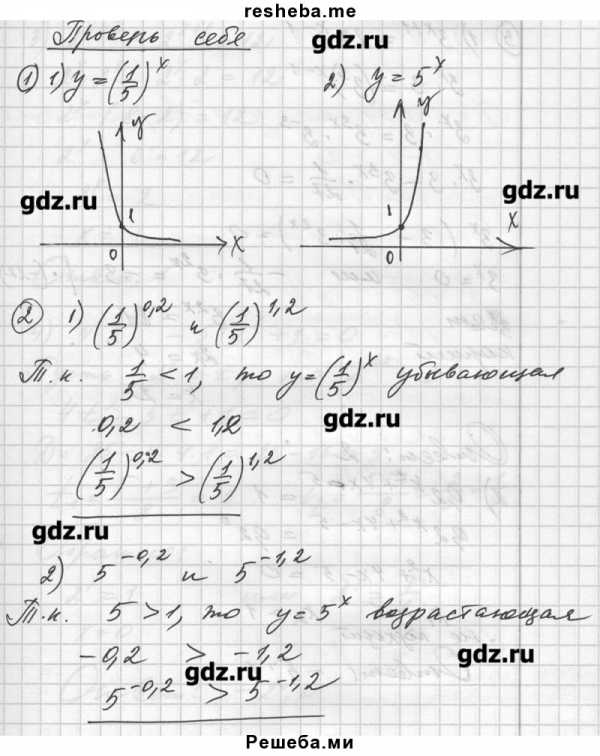 resheba.me
Проверь себя
gdz.ru
① 1) y = (1/5)^x
2) y = 5^x
y
y
gdz.ru
gdz.ru
1
1
0
x
0
x
② 1) (1/5)^0,2 и (1/5)^1,2
Т.к. 1/5 < 1, то y = (1/5)^x убывающая
gdz.ru
0,2 < 1,2
(1/5)^0,2 > (1/5)^1,2
gdz.ru
2) 5^-0,2 и 5^-1,2
Т.к. 5 > 1, то y = 5^x возрастающая
-0,2 > -1,2
gdz.ru
gdz.ru
5^-0,2 > 5^-1,2
Решеба.ми